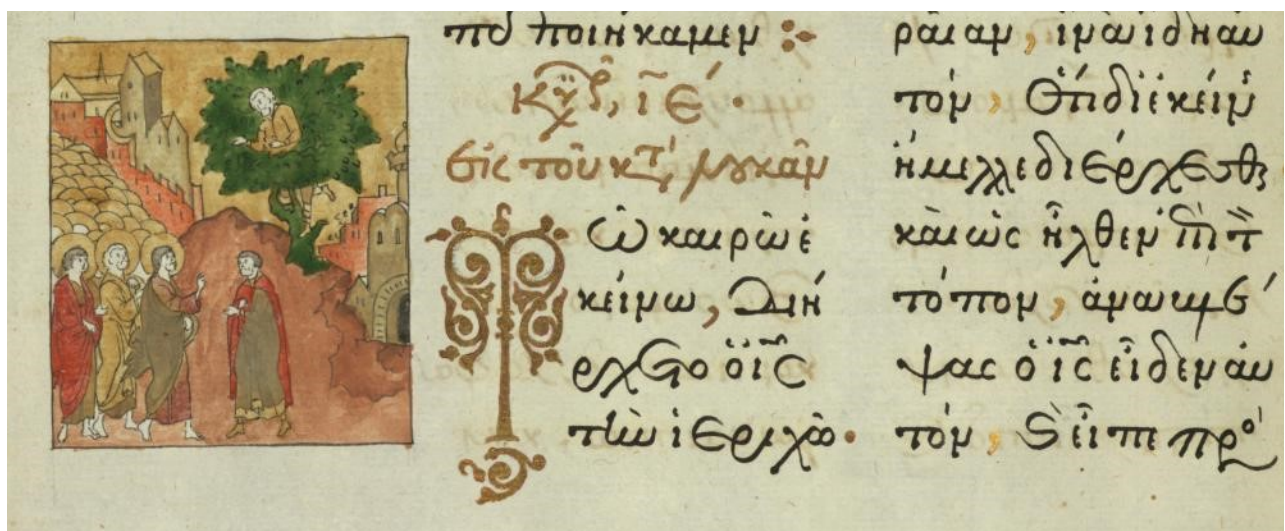 πεποιήκαμεν :·
ιε΄.
τοῦ κτ, λουκᾶν
Τῶ καιρῶ ἐ
κείνω, διή
ρχετο ὁ ἰς
τὴν ἱεριχὼ.
ραίαν, ἵνα ἴδη αὐ
τόν, ὅτι δι ἐκείν
ἤμελλε διέρχεσθ
καὶ ὡς ἦλθεν ἐπὶ τ
τόπον, ἀναβλέ
ψας ὁ ἰς εἶδεν αὐ
τόν, ϗ εἶπε πρὸ